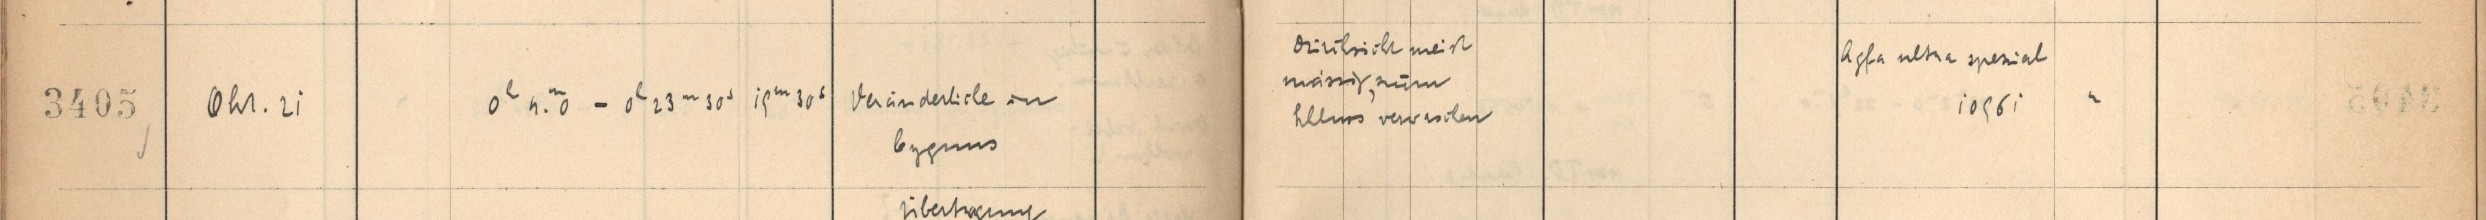 3405 Okt. 21 0h 4.m0 – 0h 23m 30s 19m 30s Veränderliche im
Cygnus
Durchsicht meist
mässig, zum
Schluss verwaschen
Agfa ultra spezial
10961
Übertragung